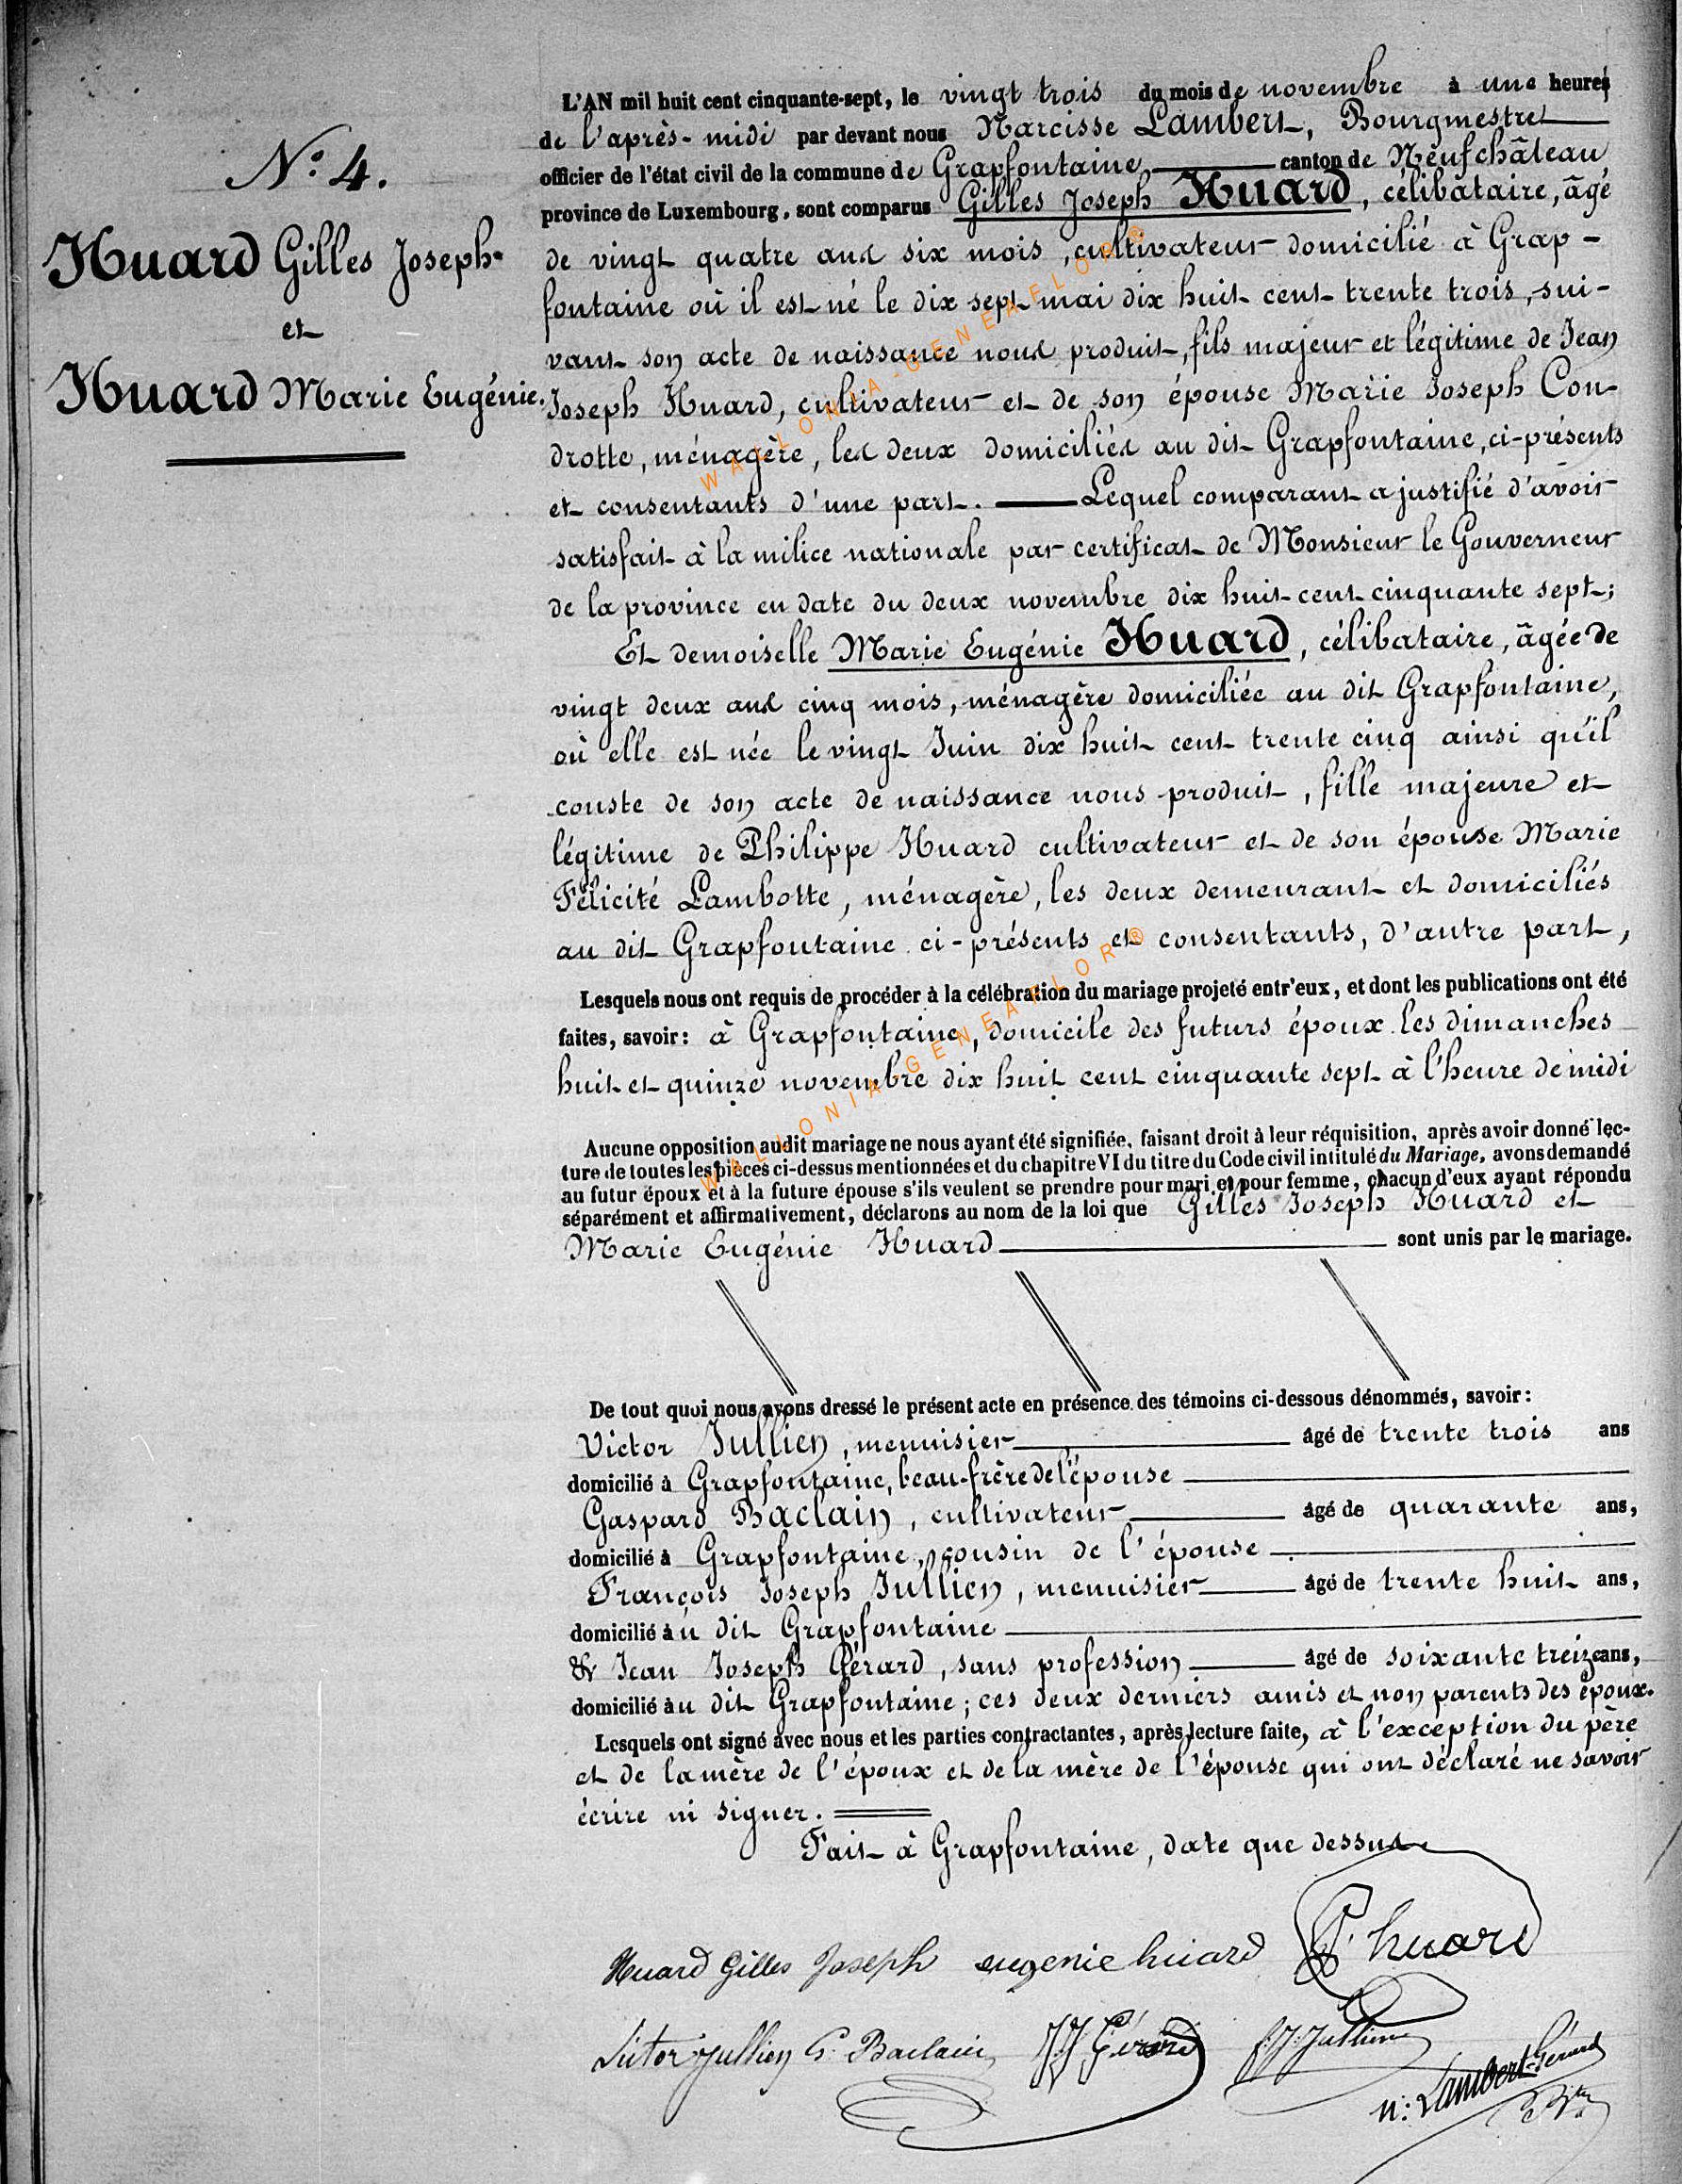 N.o 4.
Huard Gilles Joseph
et
Huard Marie Eugénie.
L'AN mil huit cent cinquante-sept, le vingt trois du mois de novembre à une heures
de l'après-midi par devant nous Narcisse Lambert, Bourgmestre
officier de l'état civil de la commune de Grapfontaine canton de Neufchâteau
province de Luxembourg, sont comparus Gilles Joseph Huard, célibataire, âgé
de vingt quatre ans six mois, cultivateur domicilié à Grap-
fontaine où il est né le dix sept mai dix huit cent trente trois, sui-
vant son acte de naissance nous produit, fils majeur et légitime de Jean
Joseph Huard, cultivateur et de son épouse Marie Joseph Con-
drotte, ménagère, les deux domiciliés au dit Grapfontaine, ci-présents
et consentants d'une part. Lequel comparant a justifié d'avoir
satisfait à la milice nationale par certificat de Monsieur le Gouverneur
de la province en date du deux novembre dix huit cent cinquante sept;
Et demoiselle Marie Eugénie Huard, célibataire, âgée de
vingt deux ans cinq mois, ménagère domiciliée au dit Grapfontaine,
où elle est née le vingt Juin dix huit cent trente cinq ainsi qu'il
conste de son acte de naissance nous produit, fille majeure et
légitime de Philippe Huard cultivateur et de son épouse Marie
Félicité Lambotte, ménagère, les deux demeurant et domiciliés
au dit Grapfontaine ci-présents et consentants, d'autre part,
Lesquels nous ont requis de procéder à la célébration du mariage projeté entr'eux, et dont les publications ont été
faites, savoir: à Grapfontaine, domicile des futurs époux les dimanches
huit et quinze novembre dix huit cent cinquante sept à l'heure de midi
Aucune opposition audit mariage ne nous ayant été signifiée, faisant droit à leur réquisition, après avoir donné lec-
ture de toutes les pièces ci-dessus mentionnées et du chapitre VI du titre du Code civil intitulé du Mariage, avons demandé
au futur époux et à la future épouse s'ils veulent se prendre pour mari et pour femme, chacun d'eux ayant répondu
séparément et affirmativement, déclarons au nom de la loi que Gilles Joseph Huard et
Marie Eugénie Huard sont unis par le mariage.
De tout quoi nous avons dressé le présent acte en présence des témoins ci-dessous dénommés, savoir:
Victor Jullien, menuisier âgé de trente trois ans
domicilié à Grapfontaine, beau-frère de l'épouse
Gaspard Baclain, cultivateur âgé de quarante ans,
domicilié à Grapfontaine, cousin de l'épouse
François Joseph Jullien, menuisier âgé de trente huit ans,
domicilié àu dit Grapfontaine
& Jean Joseph Gérard, sans profession âgé de soixante treize ans,
domicilié àu dit Grapfontaine; ces deux derniers amis et non parents des époux.
Lesquels ont signé avec nous et les parties contractantes, après lecture faite, à l'exception du père
et de la mère de l'époux et de la mère de l'épouse qui ont déclaré ne savoir
écrire ni signer.
Fait à Grapfontaine, date que dessus
Huard Gilles Joseph eugenie huard P. huard
Victor Jullien G. Baclain J J Gérard f. J. Jullien
N: Lambert-Gérard
WALLONIA-GENEAFLOR®
WALLONIA-GENEAFLOR®